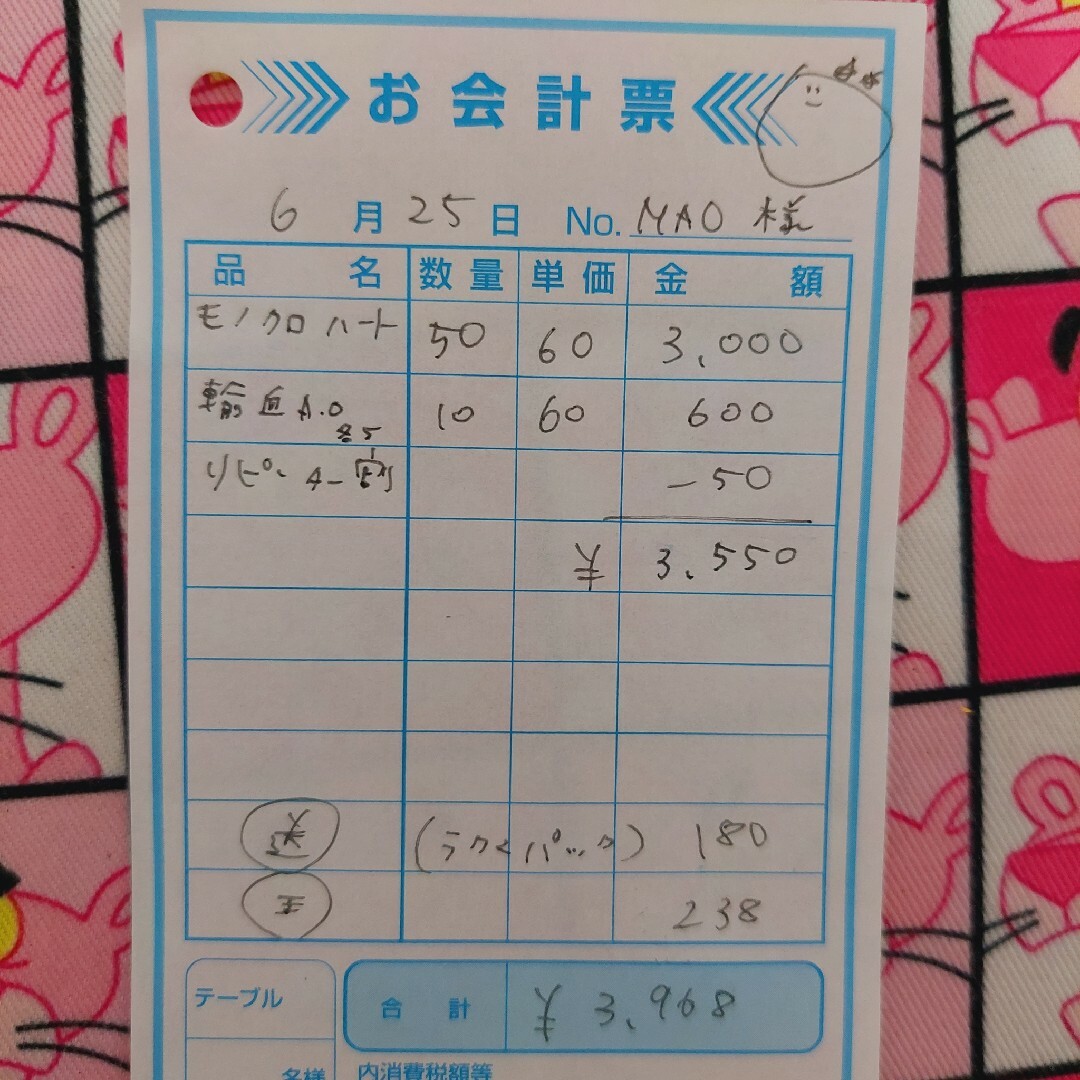 お会計票
6月25日 No. MAO 様
品名 数量 単価 金額
モノクロハート 50 60 3,000
A.O 各5 10 60 600
リピーター割 -50
¥ 3,550
送 (ラクマパック) 180
手 238
テーブル
合計 ¥ 3,968
名様
内消費税額等